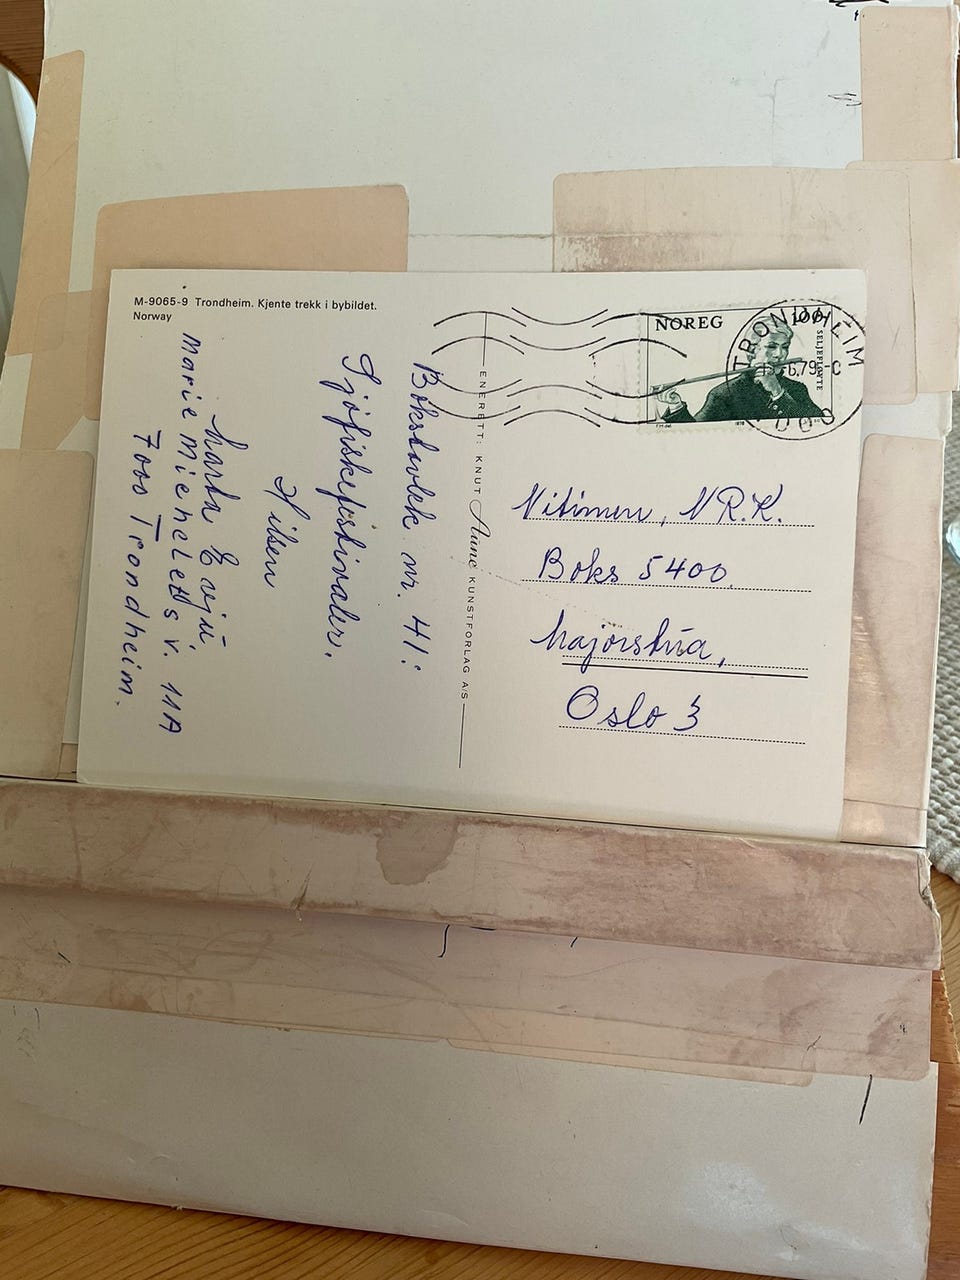 M-9065-9 Trondheim. Kjente trekk i bybildet.
Norway
NOREG
100
SELJEFLØYTE
TRONDHEIM
6.79.-C
7000
ENERETT: KNUT Aune KUNSTFORLAG A/S
Bokstavlek nr. 41:
Sjøfiskefestivaler.
Hilsen
Marta Evju
Marie Michelets v. 11A
7000 Trondheim.
Nitimen, N.R.K.
Boks 5400
Majorstua,
Oslo 3